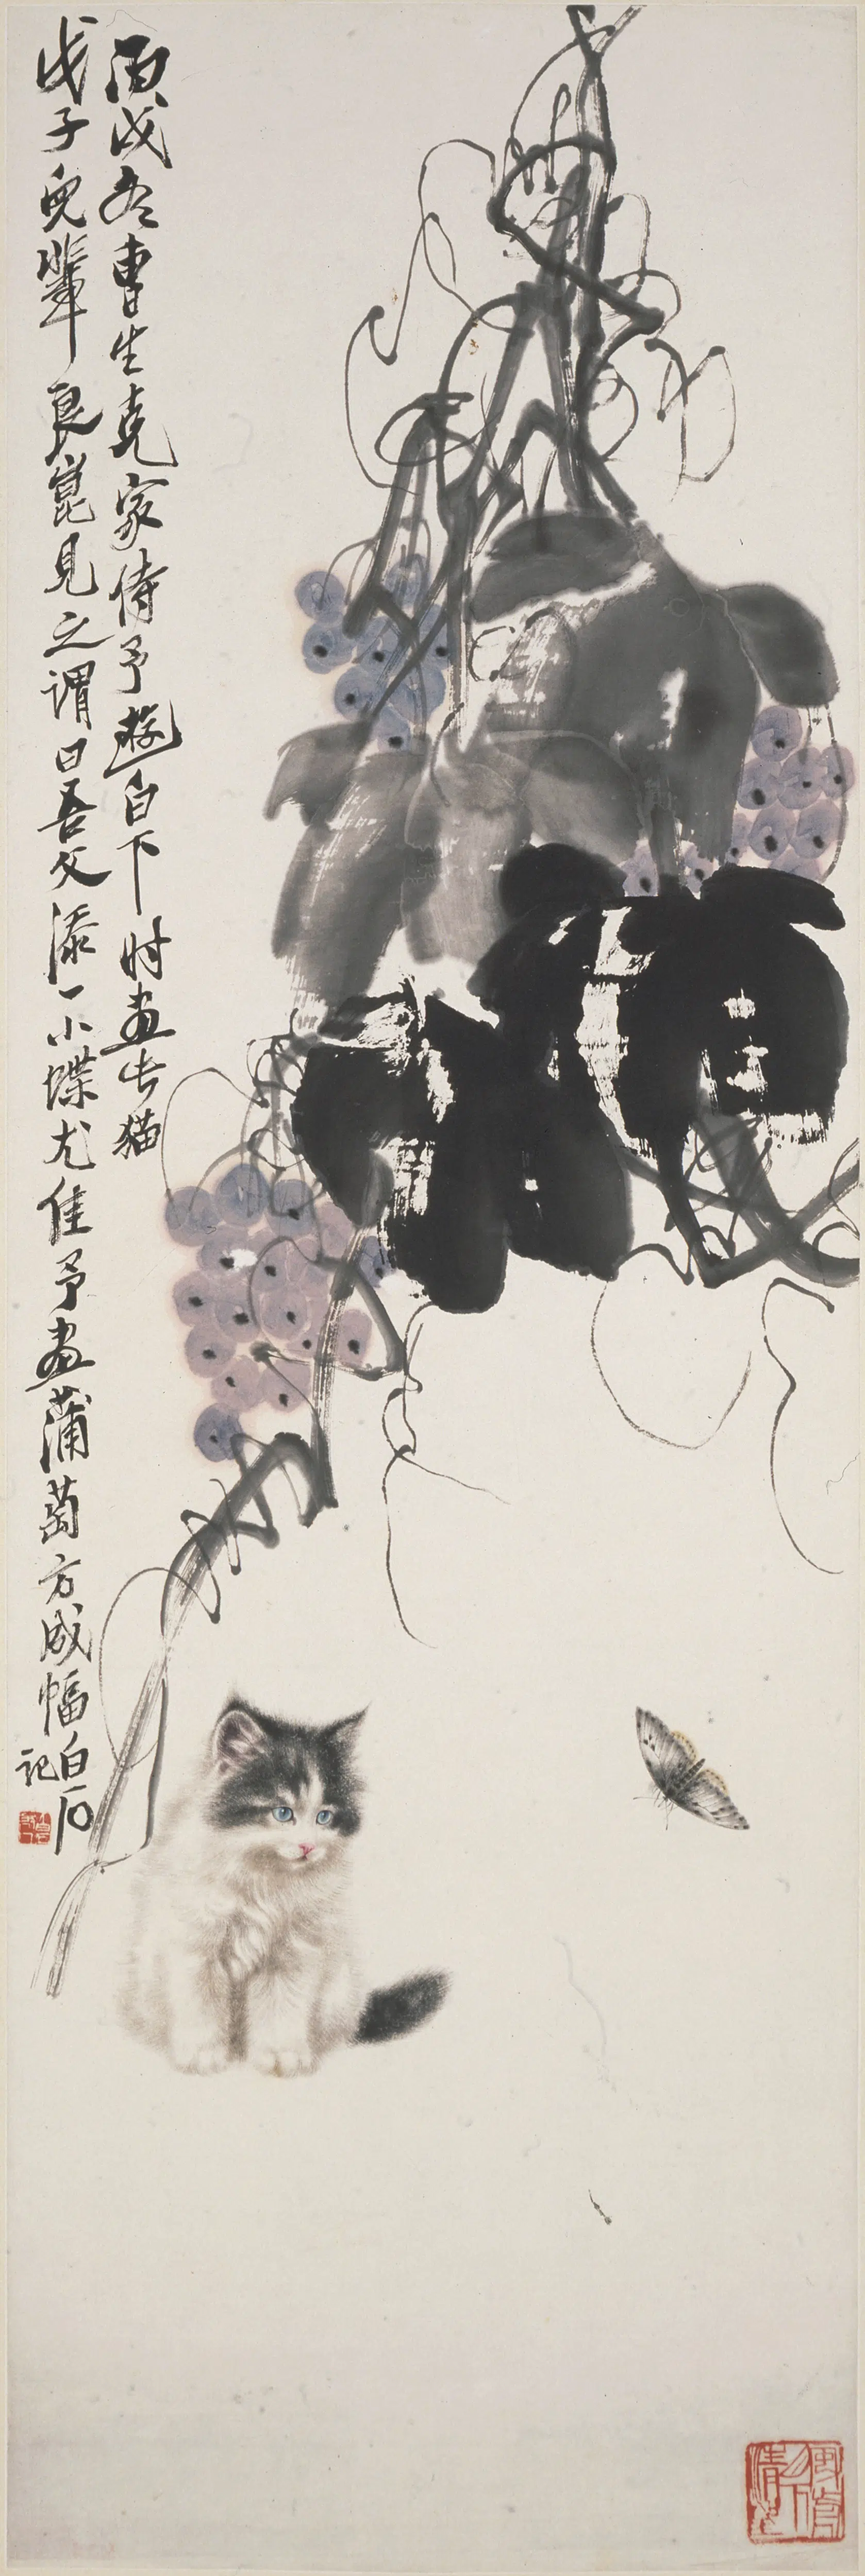 丙戌冬曹生克家侍予游白下时画此猫
戊子儿辈良崑见之谓曰吾父添一小蝶尤佳予画蒲萄方成幅白石
记